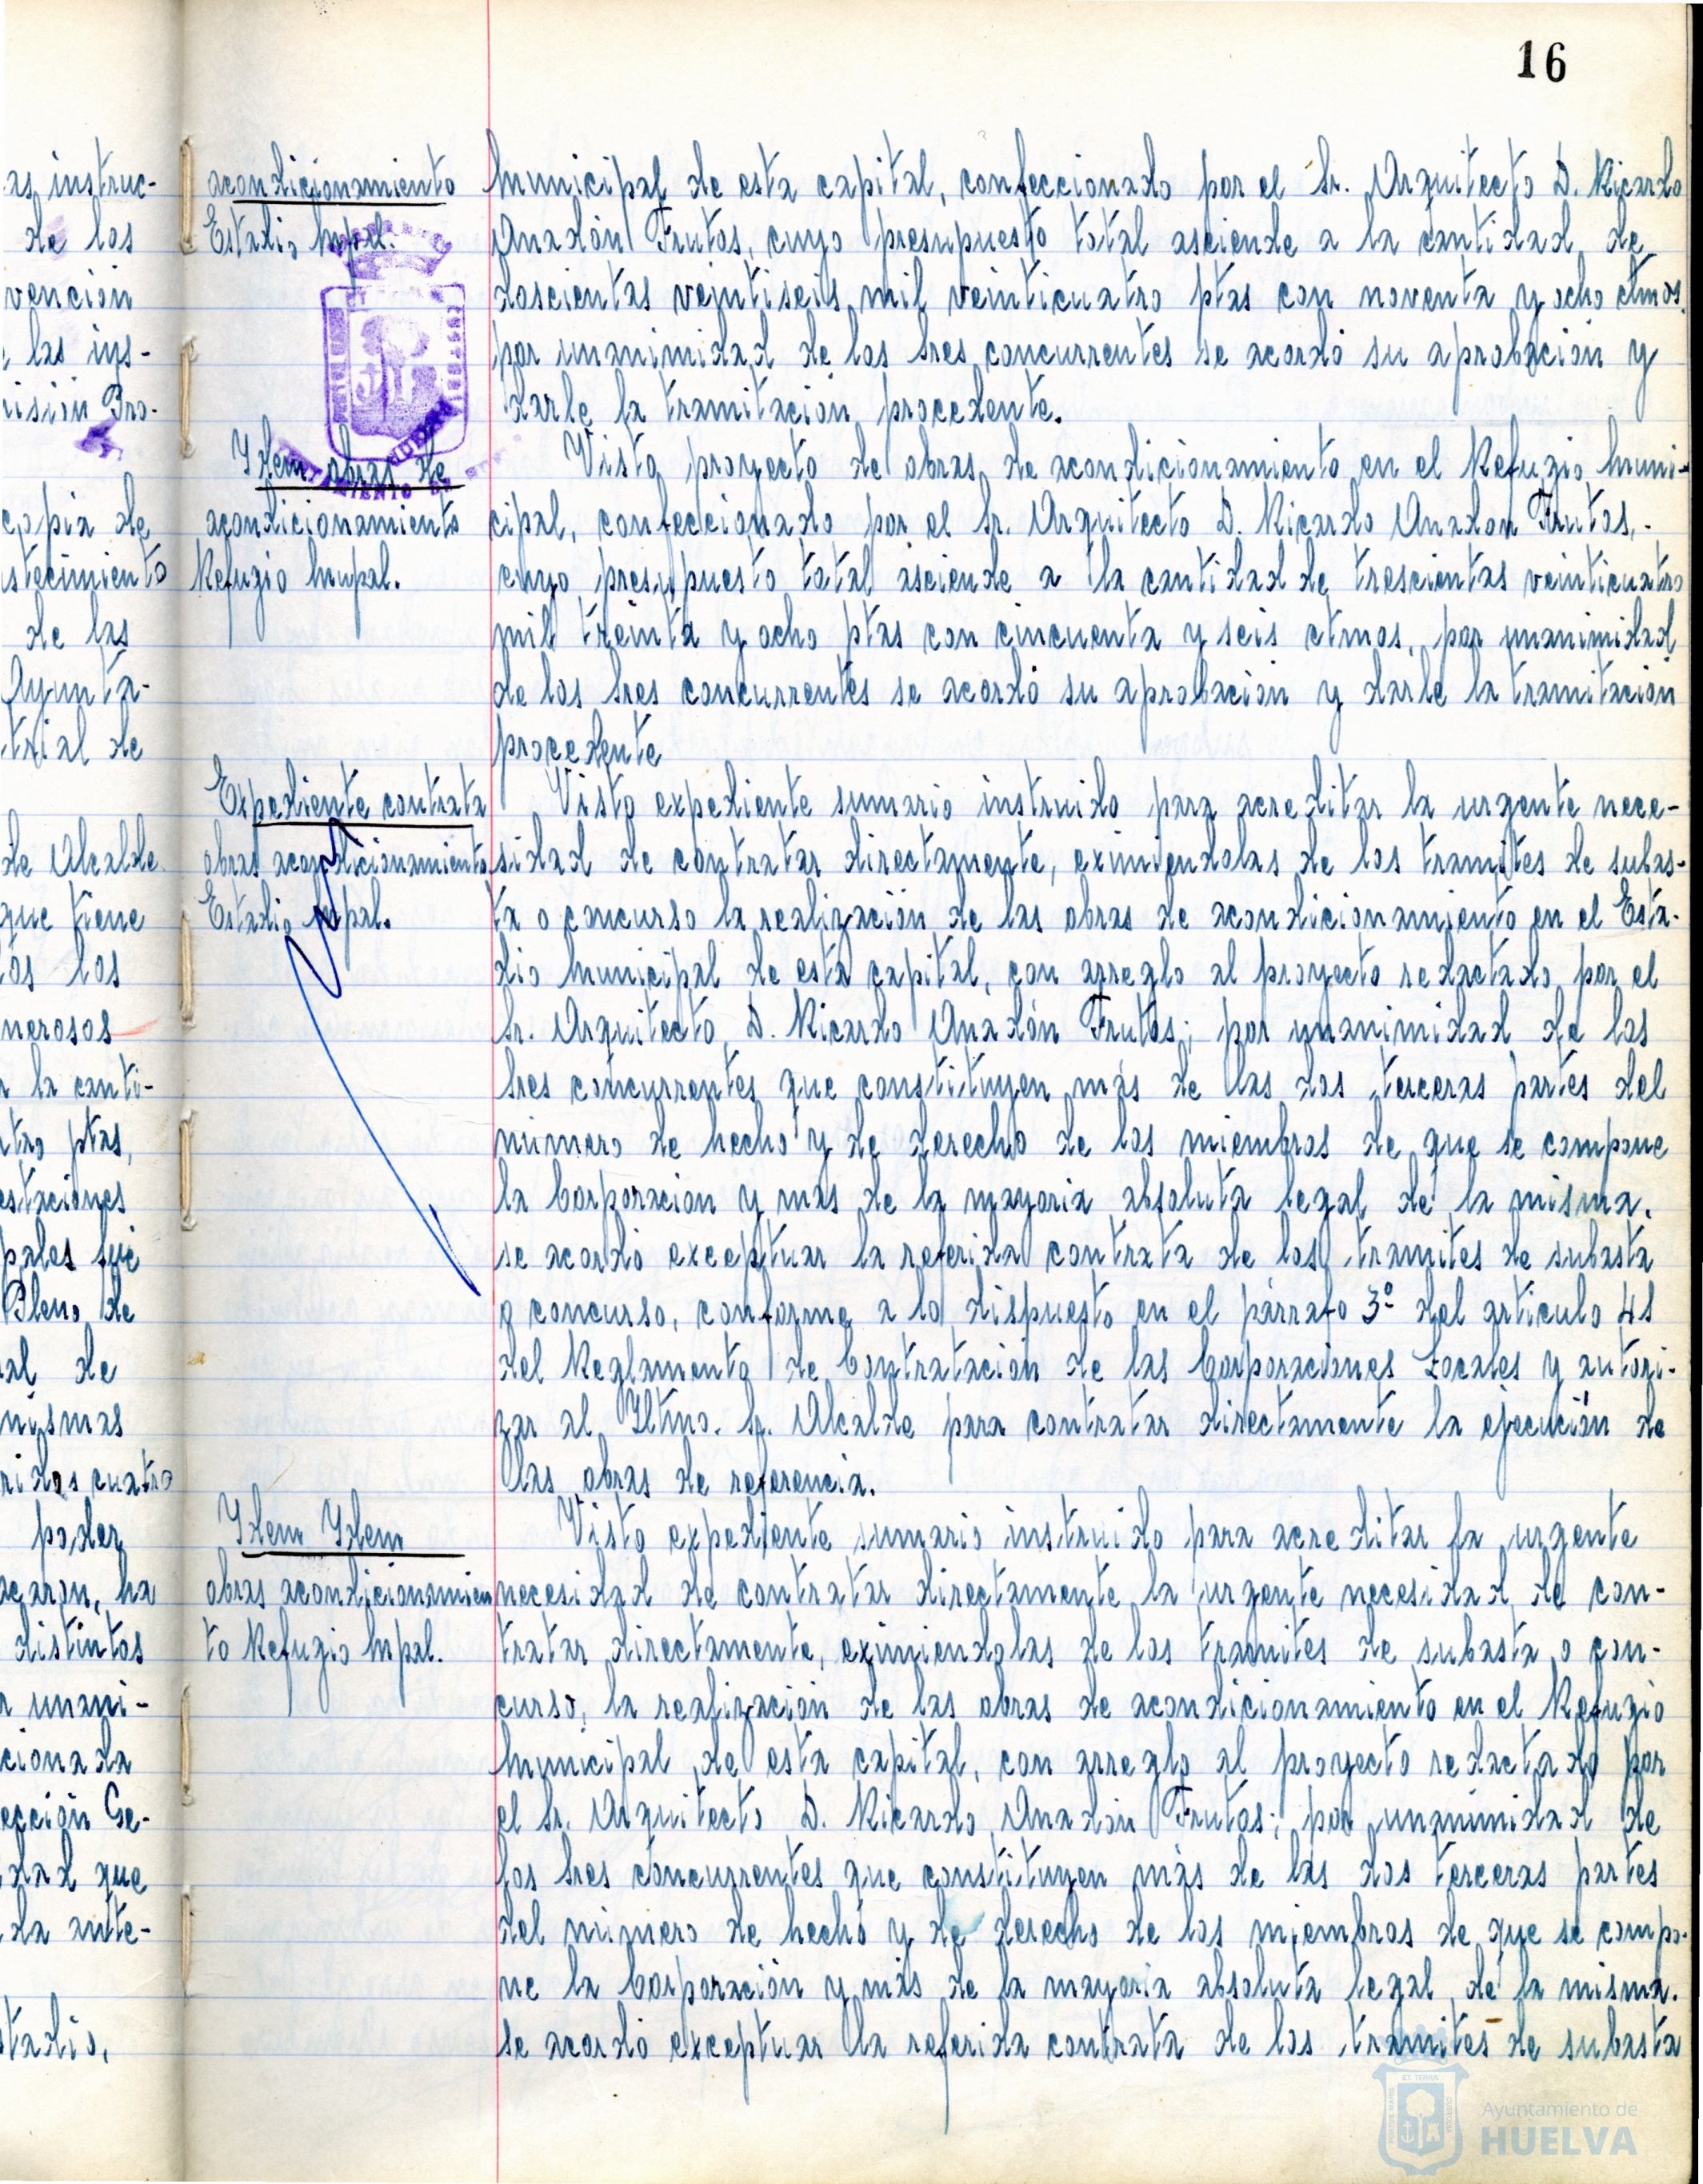 16
acondicionamiento
Estadio Mpal.
Municipal de esta capital, confeccionado por el Sr. Arquitecto D. Ricardo
Anadón Frutos, cuyo presupuesto total asciende a la cantidad de
doscientas veintiseis mil veinticuatro ptas con noventa y ocho ctmos.
por unanimidad de los Sres concurrentes se acordó su aprobación y
darle la tramitación procedente.
Idem obras de
acondicionamiento
Refugio Mupal.
Visto proyecto de obras de acondicionamiento en el Refugio Muni-
cipal, confeccionado por el Sr. Arquitecto D. Ricardo Anadon Frutos,
cuyo presupuesto total asciende a la cantidad de trescientas veinticuatro
mil treinta y ocho ptas con cincuenta y seis ctmos, por unanimidad
de los Sres concurrentes se acordó su aprobación y darle la tramitación
procedente
Expediente contrata
obras acondicionamiento
Estadio Mpal.
Visto expediente sumario instruido para acreditar la urgente nece-
sidad de contratar directamente, eximiendolas de los tramites de subas-
ta o concurso la realización de las obras de acondicionamiento en el Esta-
dio Municipal de esta capital, con arreglo al proyecto redactado por el
Sr. Arquitecto D. Ricardo Anadón Frutos; por unanimidad de los
Sres concurrentes que constituyen más de las dos terceras partes del
número de hecho y de derecho de los miembros de que se compone
la Corporación y más de la mayoria absoluta legal de la misma.
se acordó exceptuar la referida contrata de los tramites de subasta
o concurso, conforme a lo dispuesto en el párrafo 3º del articulo 41
del Reglamento de Contratación de las Corporaciones Locales y autori-
zar al Iltmo. Sr. Alcalde para contratar directamente la ejecución de
las obras de referencia.
Idem Idem
obras acondicionamien
to Refugio Mpal.
Visto expediente sumario instruido para acreditar la urgente
necesidad de contratar directamente la urgente necesidad de con-
tratar directamente, eximiendolas de los tramites de subasta o con-
curso, la realización de las obras de acondicionamiento en el Refugio
Municipal de esta capital, con arreglo al proyecto redactado por
el Sr. Arquitecto D. Ricardo Anadón Frutos; por unanimidad de
los Sres concurrentes que constituyen más de las dos terceras partes
del número de hecho y de derecho de los miembros de que se compo-
ne la Corporación y más de la mayoria absoluta legal de la misma.
se acordó exceptuar la referida contrata de los tramites de subasta
Ayuntamiento de
HUELVA